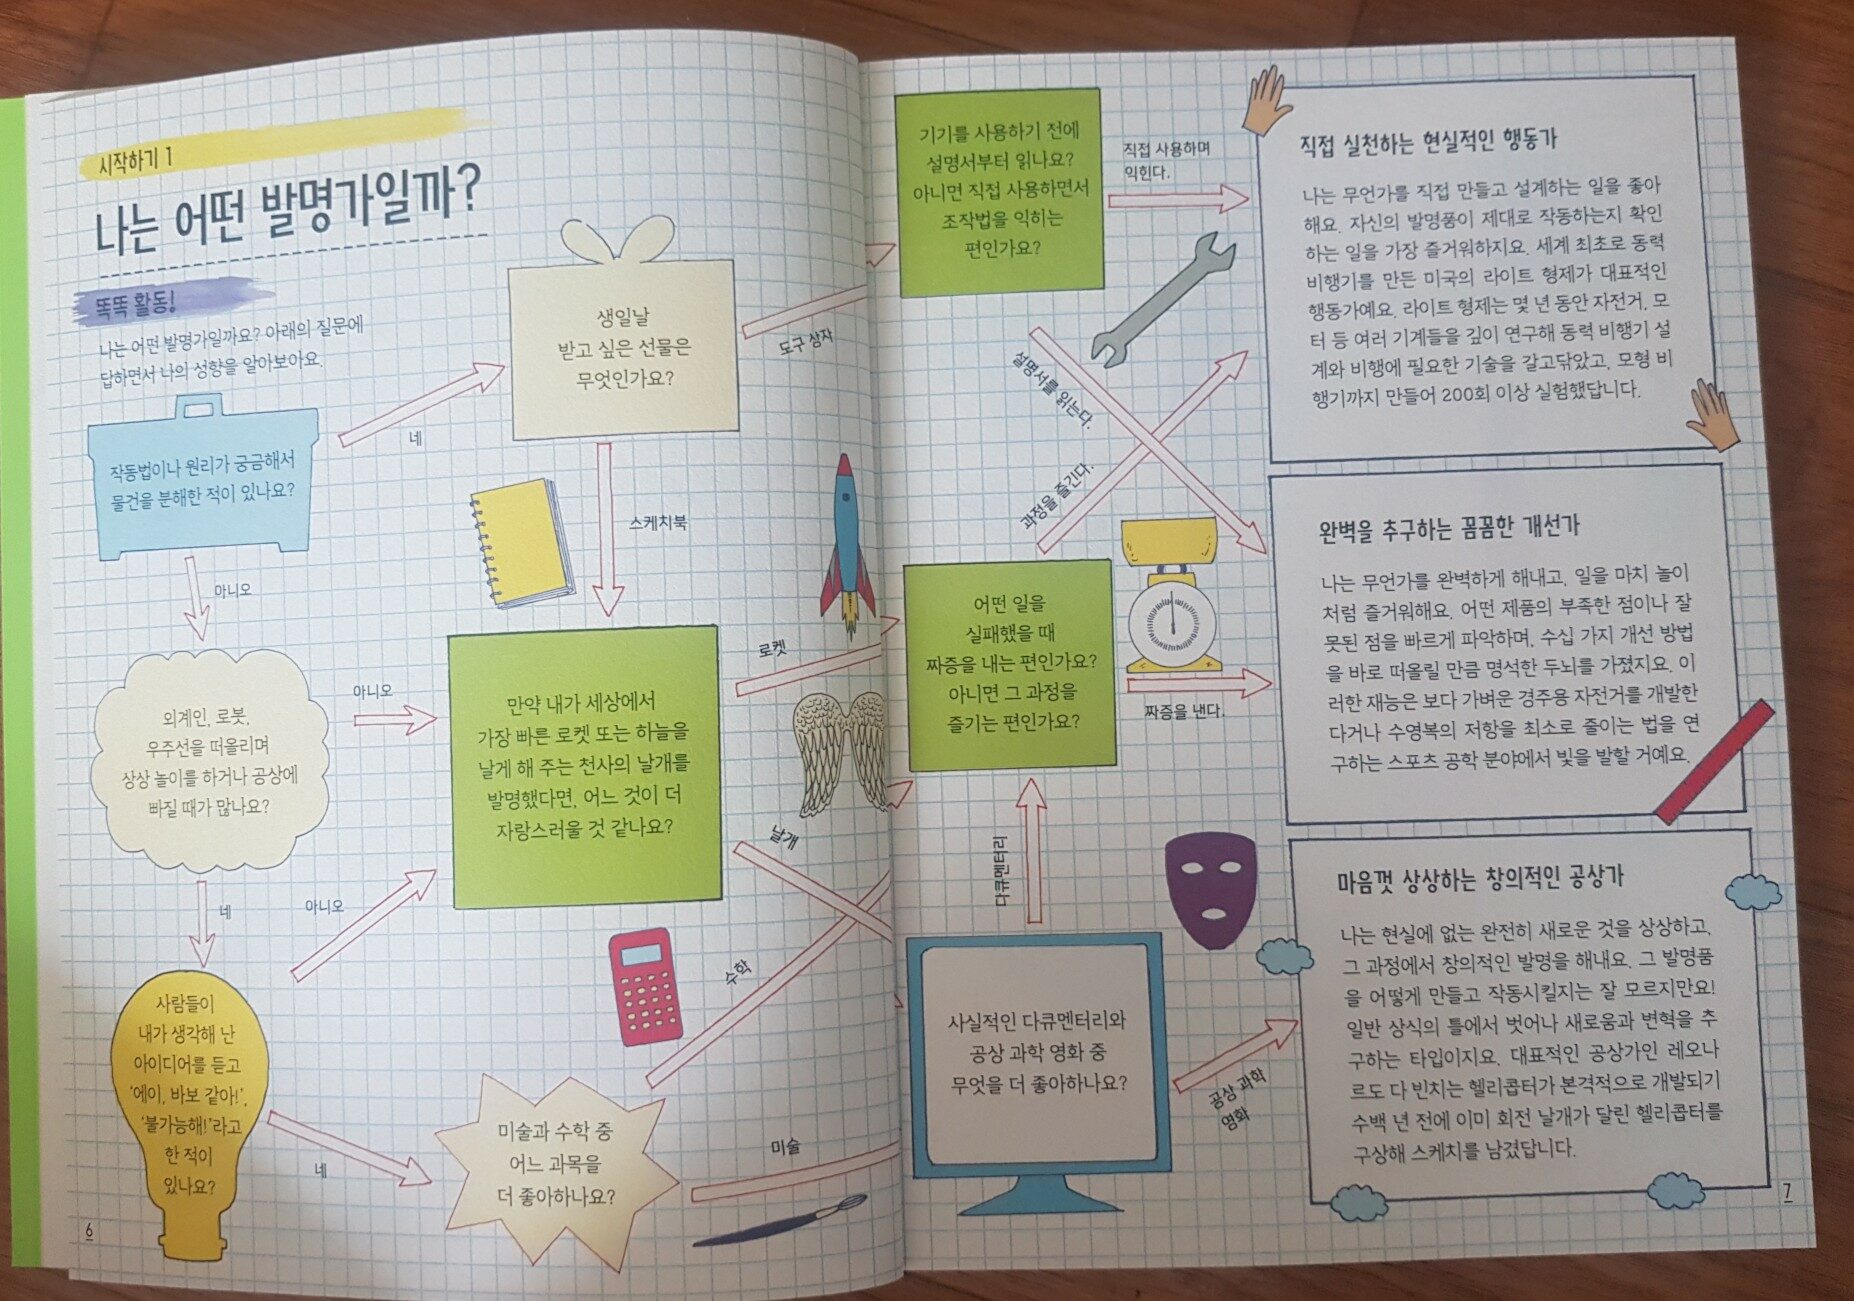 시작하기 1
나는 어떤 발명가일까?
똑똑 활동!
나는 어떤 발명가일까요? 아래의 질문에
답하면서 나의 성향을 알아보아요.
작동법이나 원리가 궁금해서
물건을 분해한 적이 있나요?
네
아니오
생일날
받고 싶은 선물은
무엇인가요?
도구 상자
스케치북
외계인, 로봇,
우주선을 떠올리며
상상 놀이를 하거나 공상에
빠질 때가 많나요?
아니오
네
만약 내가 세상에서
가장 빠른 로켓 또는 하늘을
날게 해 주는 천사의 날개를
발명했다면, 어느 것이 더
자랑스러울 것 같나요?
로켓
날개
사람들이
내가 생각해 난
아이디어를 듣고
‘에이, 바보 같아!’,
‘불가능해!’라고
한 적이
있나요?
아니오
네
미술과 수학 중
어느 과목을
더 좋아하나요?
수학
미술
6
기기를 사용하기 전에
설명서부터 읽나요?
아니면 직접 사용하면서
조작법을 익히는
편인가요?
직접 사용하며
익힌다.
설명서를 읽는다.
과정을 즐긴다.
어떤 일을
실패했을 때
짜증을 내는 편인가요?
아니면 그 과정을
즐기는 편인가요?
짜증을 낸다.
다큐멘터리
사실적인 다큐멘터리와
공상 과학 영화 중
무엇을 더 좋아하나요?
공상 과학
영화
직접 실천하는 현실적인 행동가
나는 무언가를 직접 만들고 설계하는 일을 좋아
해요. 자신의 발명품이 제대로 작동하는지 확인
하는 일을 가장 즐거워하지요. 세계 최초로 동력
비행기를 만든 미국의 라이트 형제가 대표적인
행동가예요. 라이트 형제는 몇 년 동안 자전거, 모
터 등 여러 기계들을 깊이 연구해 동력 비행기 설
계와 비행에 필요한 기술을 갈고닦았고, 모형 비
행기까지 만들어 200회 이상 실험했답니다.
완벽을 추구하는 꼼꼼한 개선가
나는 무언가를 완벽하게 해내고, 일을 마치 놀이
처럼 즐거워해요. 어떤 제품의 부족한 점이나 잘
못된 점을 빠르게 파악하며, 수십 가지 개선 방법
을 바로 떠올릴 만큼 명석한 두뇌를 가졌지요. 이
러한 재능은 보다 가벼운 경주용 자전거를 개발한
다거나 수영복의 저항을 최소로 줄이는 법을 연
구하는 스포츠 공학 분야에서 빛을 발할 거예요.
마음껏 상상하는 창의적인 공상가
나는 현실에 없는 완전히 새로운 것을 상상하고,
그 과정에서 창의적인 발명을 해내요. 그 발명품
을 어떻게 만들고 작동시킬지는 잘 모르지만요!
일반 상식의 틀에서 벗어나 새로움과 변혁을 추
구하는 타입이지요. 대표적인 공상가인 레오나
르도 다 빈치는 헬리콥터가 본격적으로 개발되기
수백 년 전에 이미 회전 날개가 달린 헬리콥터를
구상해 스케치를 남겼답니다.
7